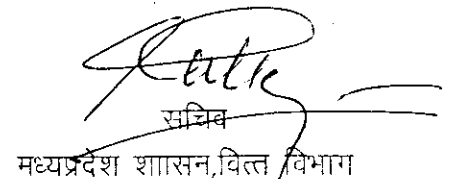 सचिव
मध्यप्रदेश शाासन,वित्त विभाग